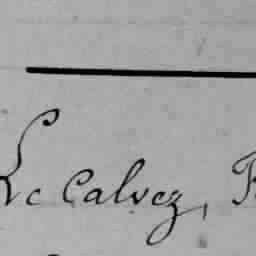 Le Calvez,